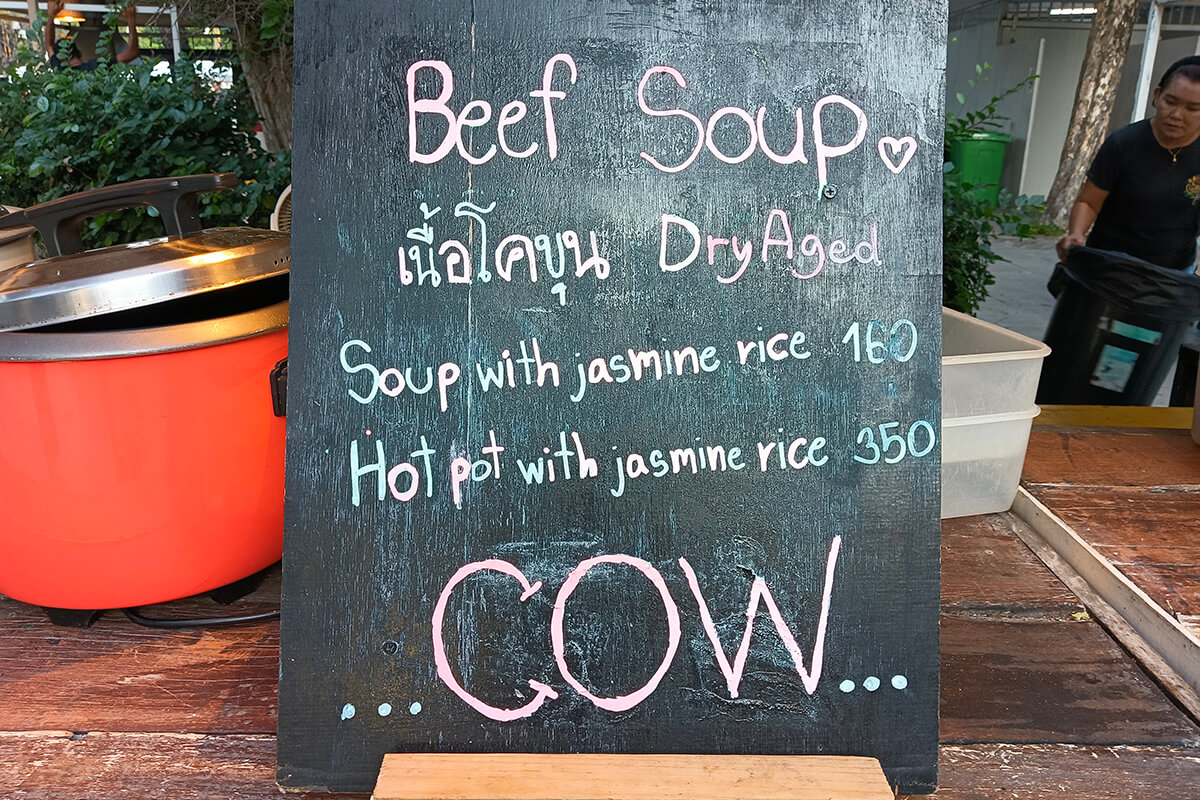 Beef Soup.
เนื้อโคขุน Dry Aged
Soup with jasmine rice 160
Hot pot with jasmine rice 350
... COW ...